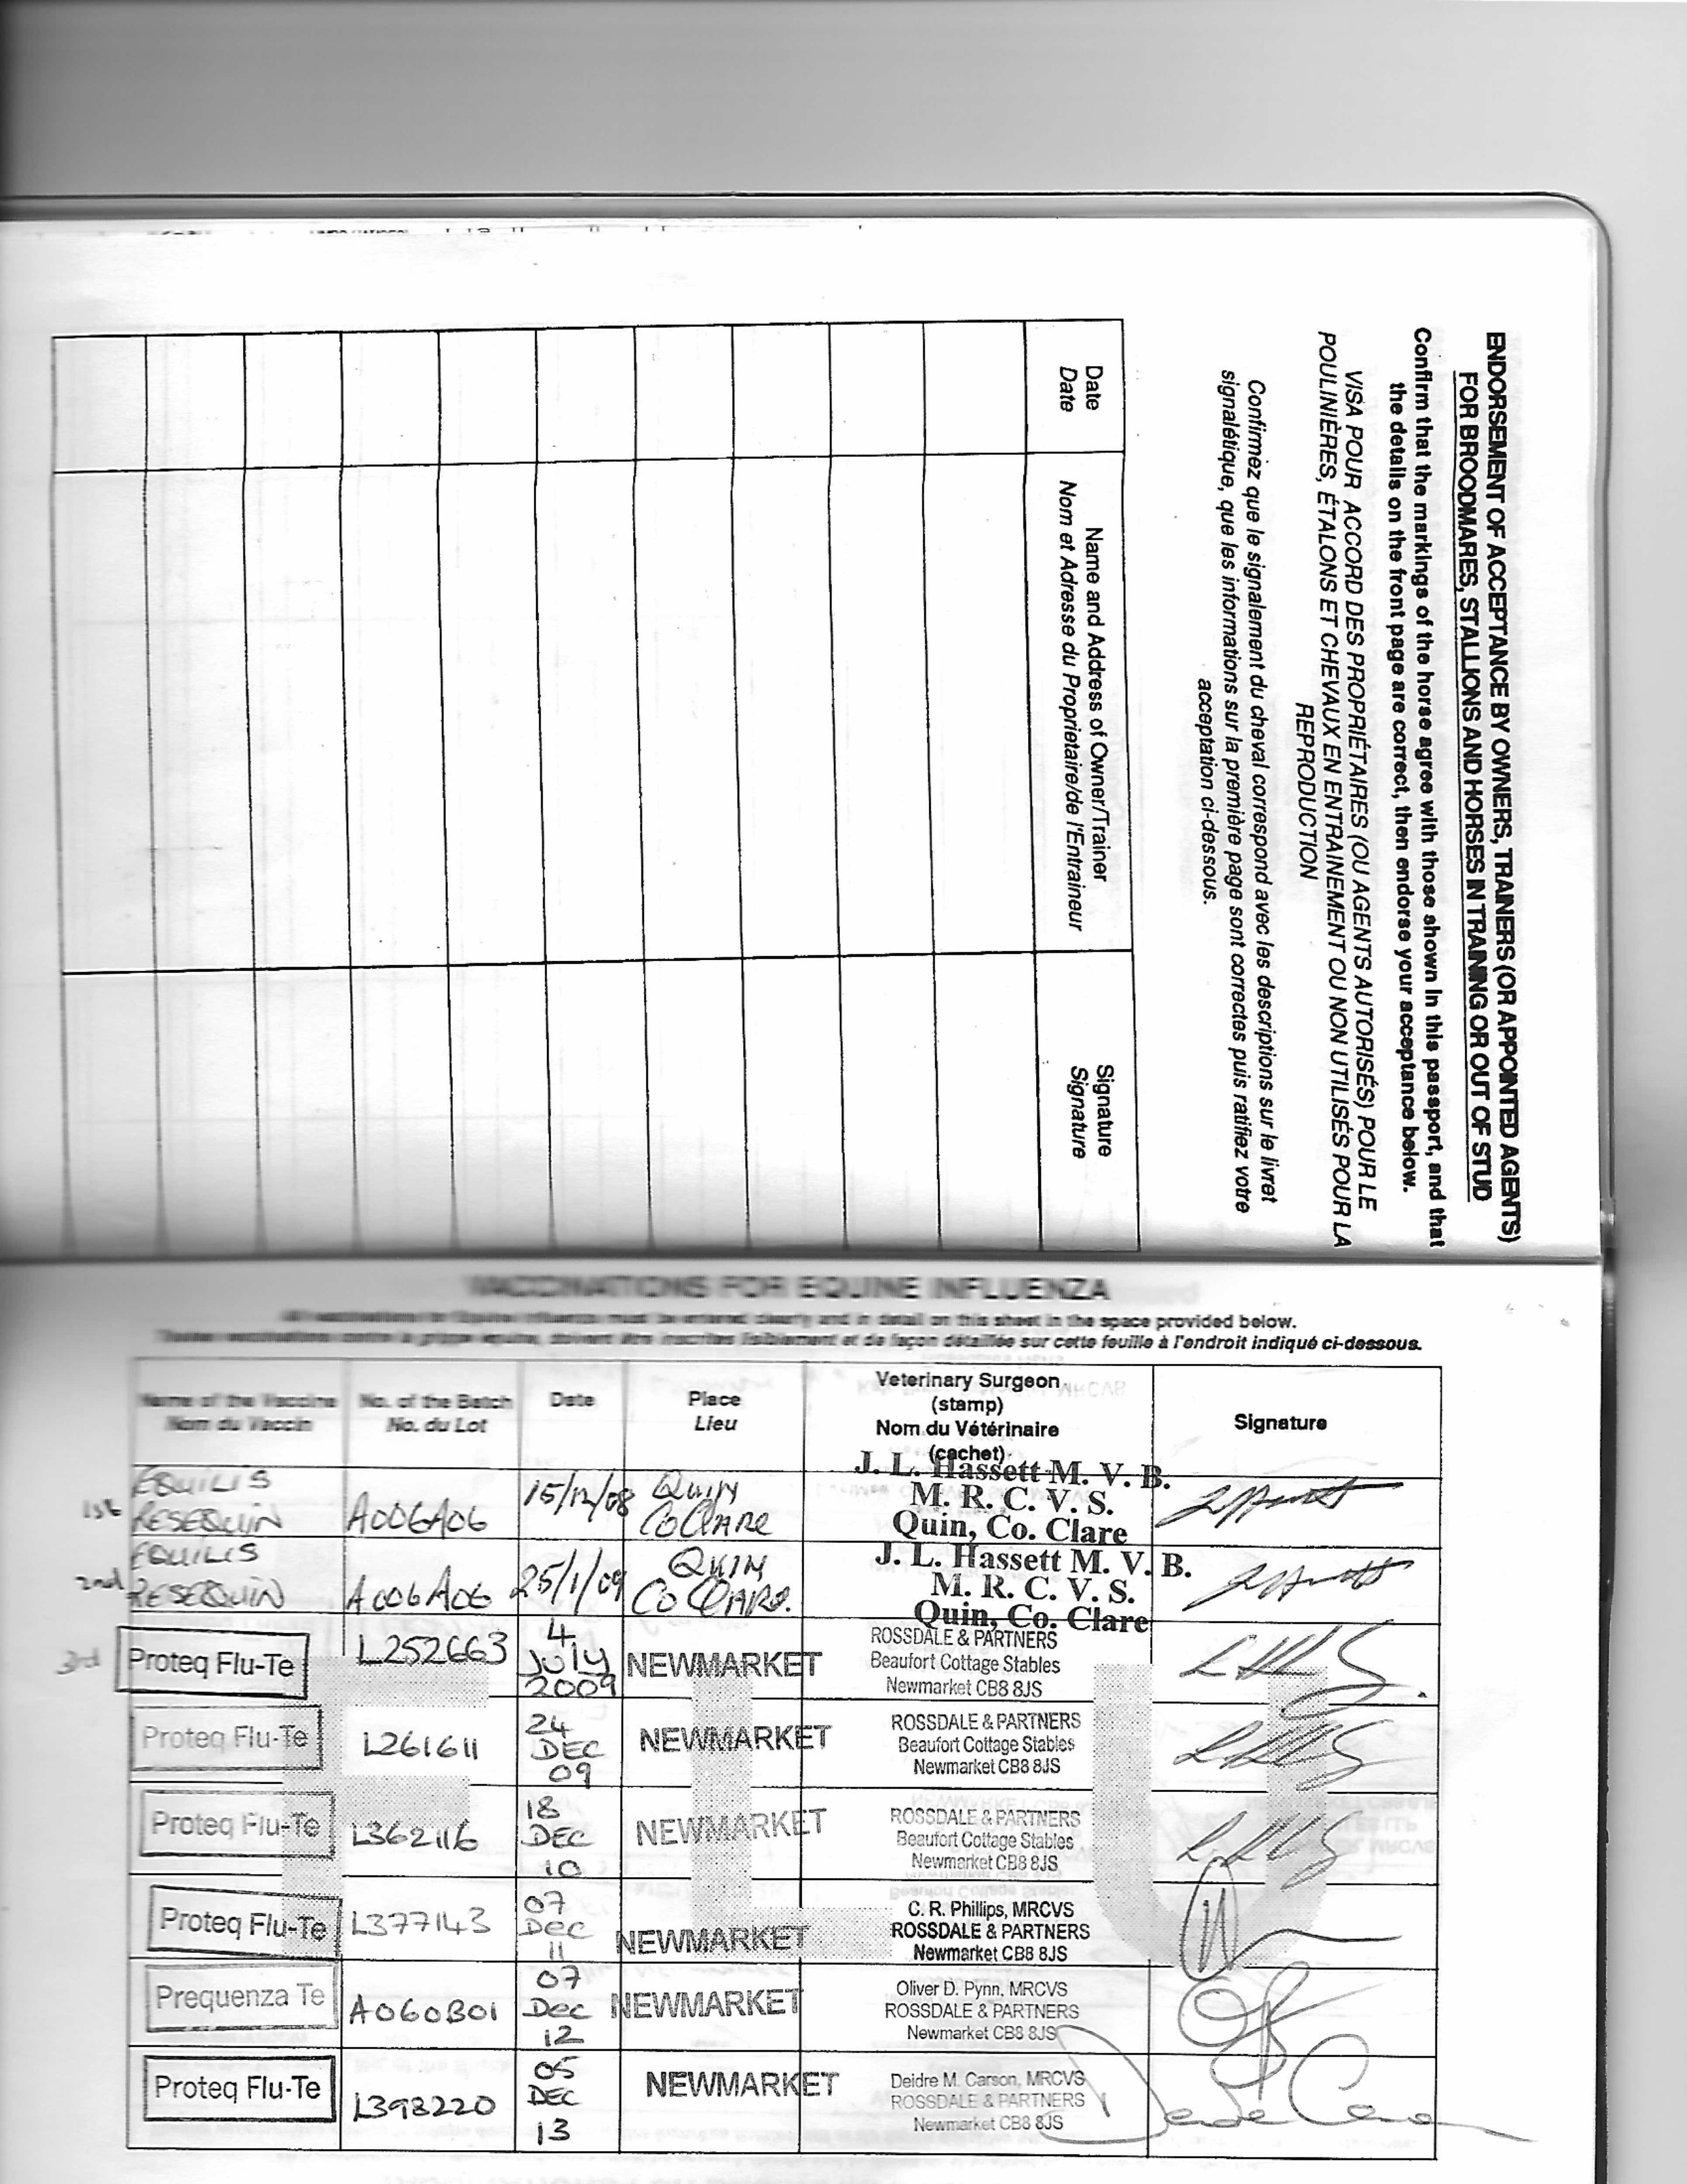 ENDORSEMENT OF ACCEPTANCE BY OWNERS, TRAINERS (OR APPOINTED AGENTS)
FOR BROODMARES, STALLIONS AND HORSES IN TRAINING OR OUT OF STUD
Confirm that the markings of the horse agree with those shown in this passport, and that
the details on the front page are correct, then endorse your acceptance below.
VISA POUR ACCORD DES PROPRIÉTAIRES (OU AGENTS AUTORISÉS) POUR LE
POULINIÈRES, ÉTALONS ET CHEVAUX EN ENTRAINEMENT OU NON UTILISÉS POUR LA
REPRODUCTION
Confirmez que le signalement du cheval correspond avec les descriptions sur le livret
signalétique, que les informations sur la première page sont correctes puis ratifiez votre
acceptation ci-dessous.
Date
Date
Name and Address of Owner/Trainer
Nom et Adresse du Proprietaire/de l'Entraineur
Signature
Signature
VACCINATIONS FOR EQUINE INFLUENZA
All vaccinations for Equine Influenza must be entered clearly and in detail on this sheet in the space provided below.
Toutes vaccinations contre la grippe équine, doivent être inscrites lisiblement et de façon détaillée sur cette feuille à l'endroit indiqué ci-dessous.
Name of the Vaccine
Nom du Vaccin
No. of the Batch
No. du Lot
Date
Place
Lieu
Veterinary Surgeon
(stamp)
Nom du Vétérinaire
(cachet)
Signature
1st
EQUILIS
RESEQUIN
A006A06
15/12/08
QUIN
CO CLARE
J. L. Hassett M. V. B.
M. R. C. V. S.
Quin, Co. Clare
2nd
EQUILIS
RESEQUIN
A006A06
25/1/09
QUIN
CO CLARE.
J. L. Hassett M. V. B.
M. R. C. V. S.
Quin, Co. Clare
3rd
Proteq Flu-Te
L252663
4
July
2009
NEWMARKET
ROSSDALE & PARTNERS
Beaufort Cottage Stables
Newmarket CB8 8JS
Proteq Flu-Te
L261611
24
DEC
09
NEWMARKET
ROSSDALE & PARTNERS
Beaufort Cottage Stables
Newmarket CB8 8JS
Proteq Flu-Te
L362116
18
DEC
10
NEWMARKET
ROSSDALE & PARTNERS
Beaufort Cottage Stables
Newmarket CB8 8JS
Proteq Flu-Te
L377143
07
Dec
11
NEWMARKET
C. R. Phillips, MRCVS
ROSSDALE & PARTNERS
Newmarket CB8 8JS
Prequenza Te
A060B01
07
Dec
12
NEWMARKET
Oliver D. Pynn, MRCVS
ROSSDALE & PARTNERS
Newmarket CB8 8JS
Proteq Flu-Te
L393220
05
DEC
13
NEWMARKET
Deidre M. Carson, MRCVS
ROSSDALE & PARTNERS
Newmarket CB8 8JS